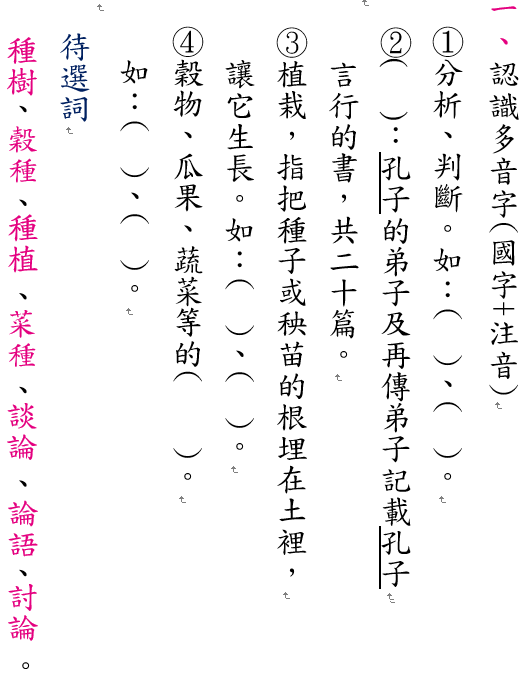 一、認識多音字(國字+注音)
①分析、判斷。如：( )、( )。
②( )：孔子的弟子及再傳弟子記載孔子
言行的書，共二十篇。
③植栽，指把種子或秧苗的根埋在土裡，
讓它生長。如：( )、( )。
④穀物、瓜果、蔬菜等的( )。
如：( )、( )。
待選詞
種樹、穀種、種植、菜種、談論、論語、討論。